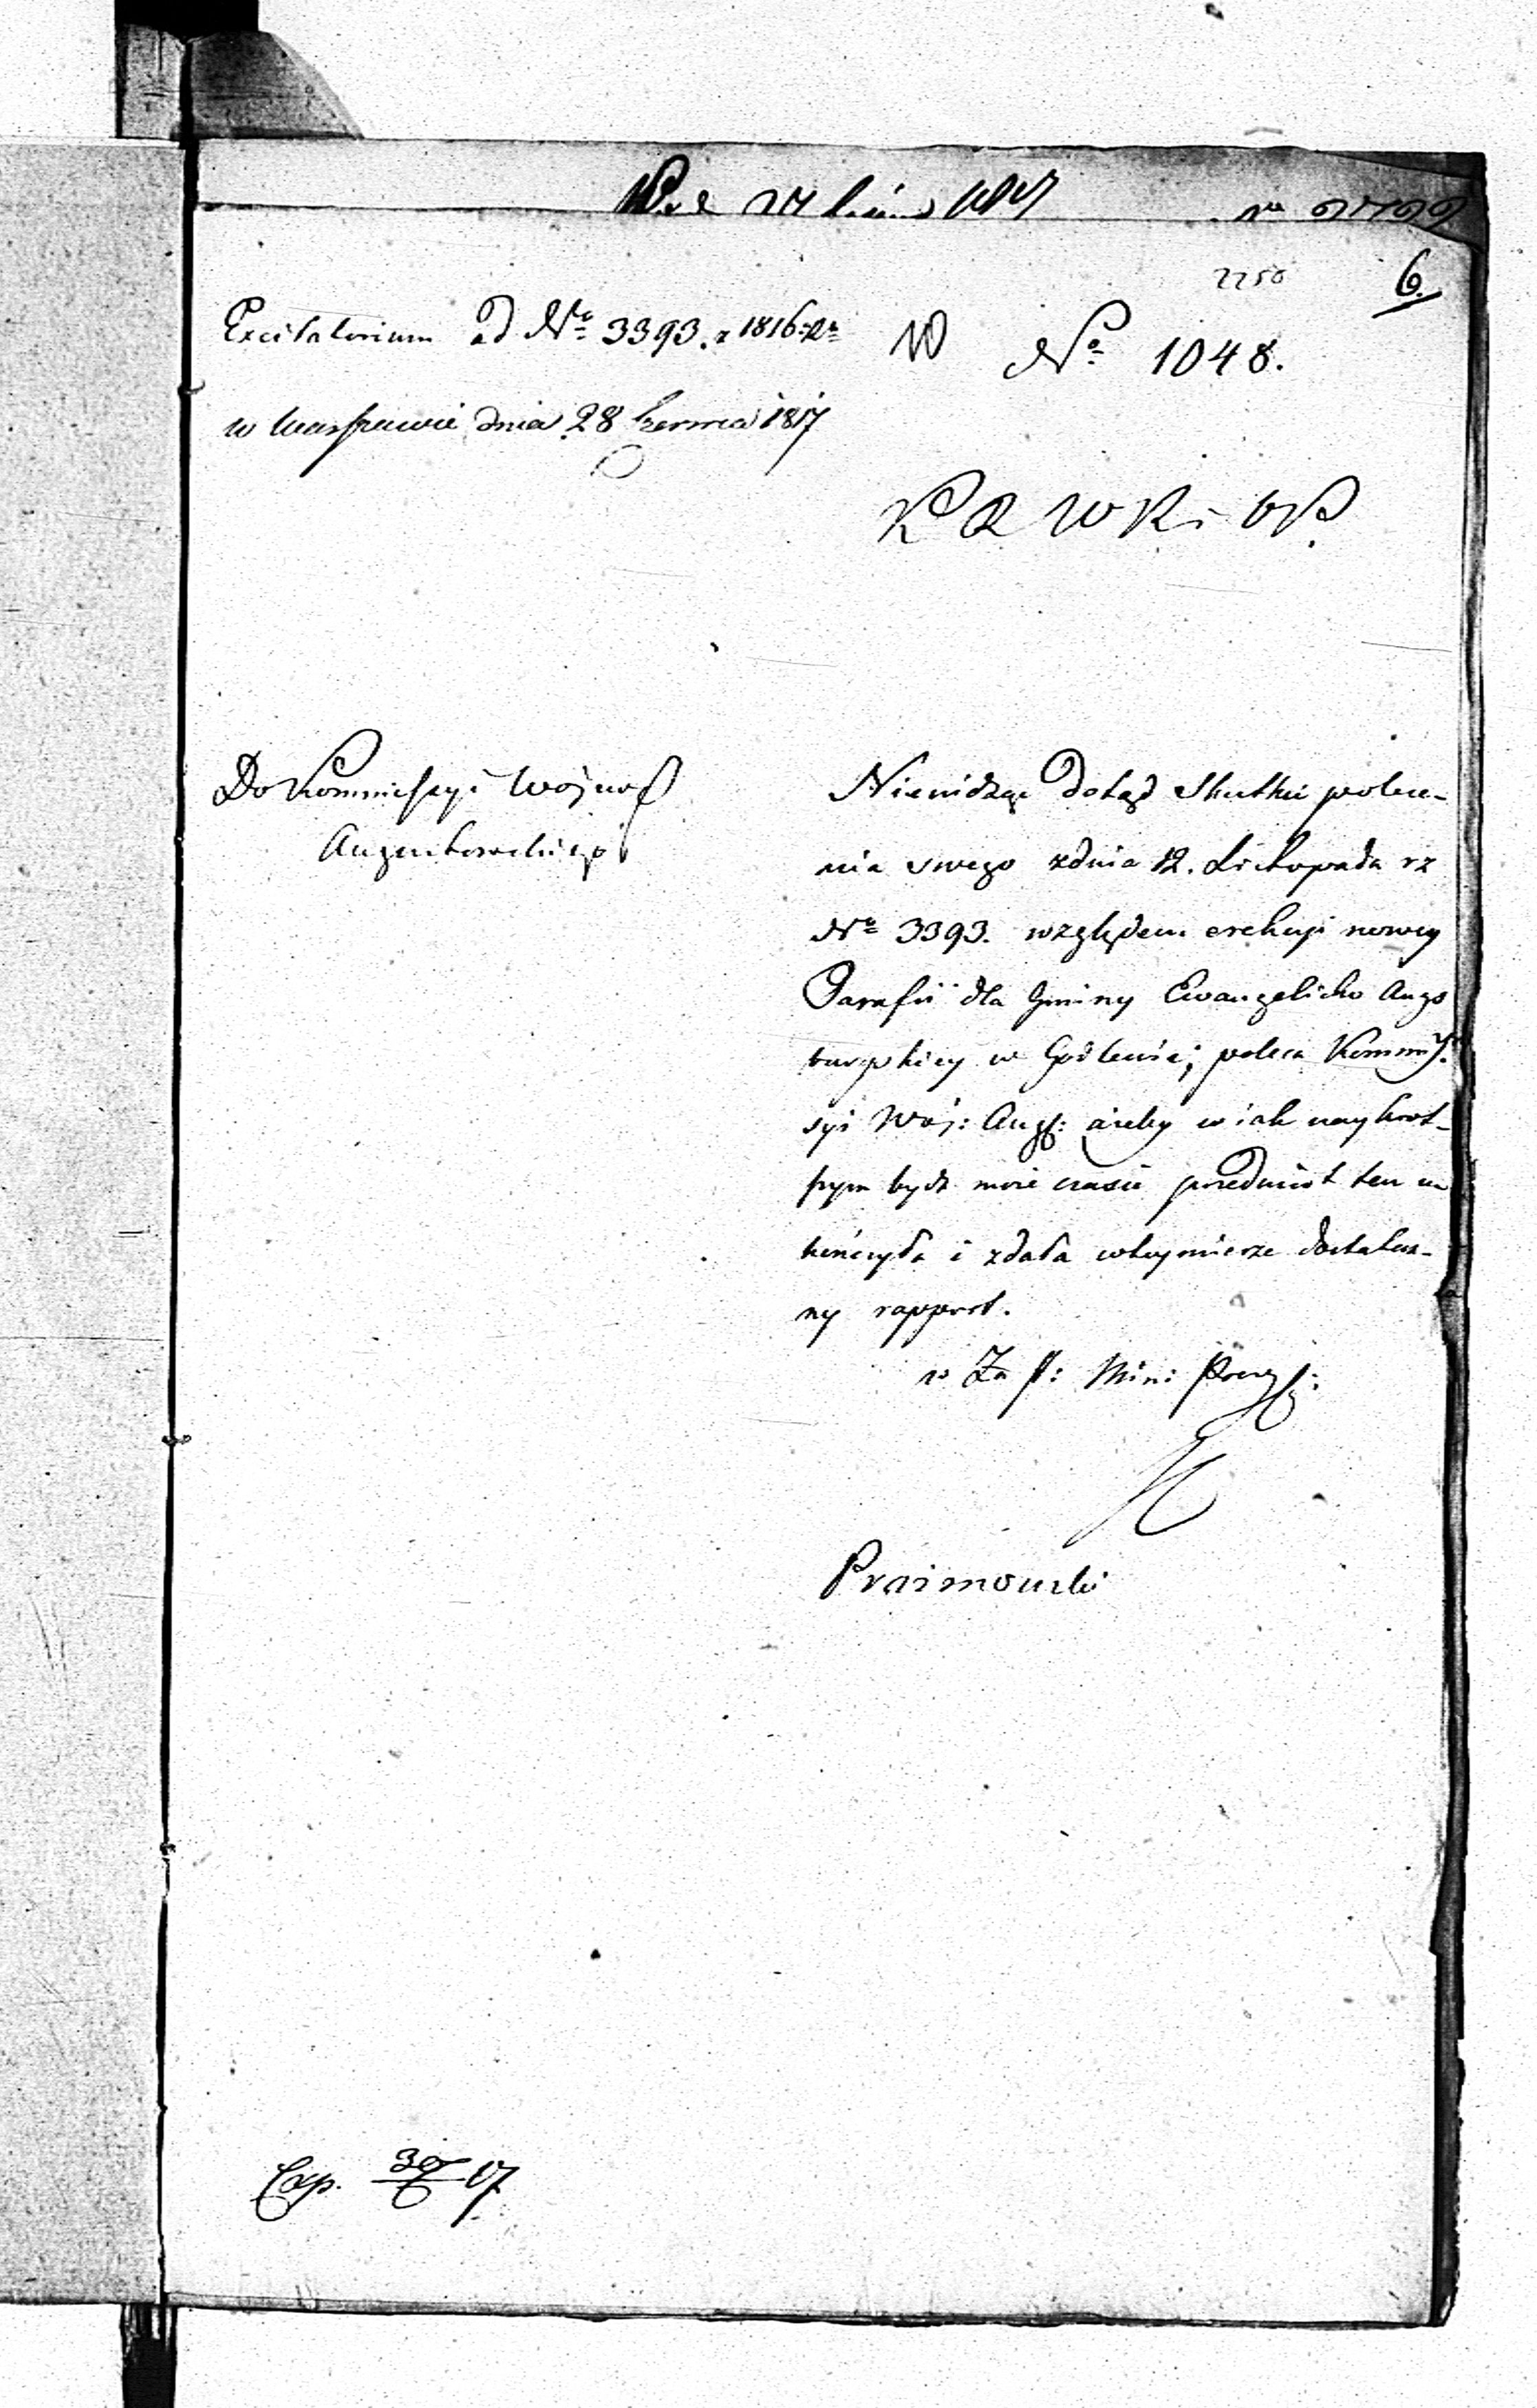 2250
6.
Excitatorium ad No 3393. z 1816. R
W No 1048.
w Warszawie dnia 28 Czerwca 1817
K R W R i O P.
Do Kommissyi Wojew
Augustowskiego
Niewidząc dotąd skutku polece-
nia swego z dnia 12. Listopada rz
No 3393. względem erekcyi nowey
Parafii dla Gminy Ewangelicko Augs
burgskiey w Godlewie; poleca Kommis.
syi Woj: Aug: ażeby w iak naykrot-
szym bydź może czasie przedmiot ten u
kończyła i zdała w tey mierze dostatecz-
ny rapport.
w Za s: Mini: Prezy:
Praźmowski
Exp. 30/6 17